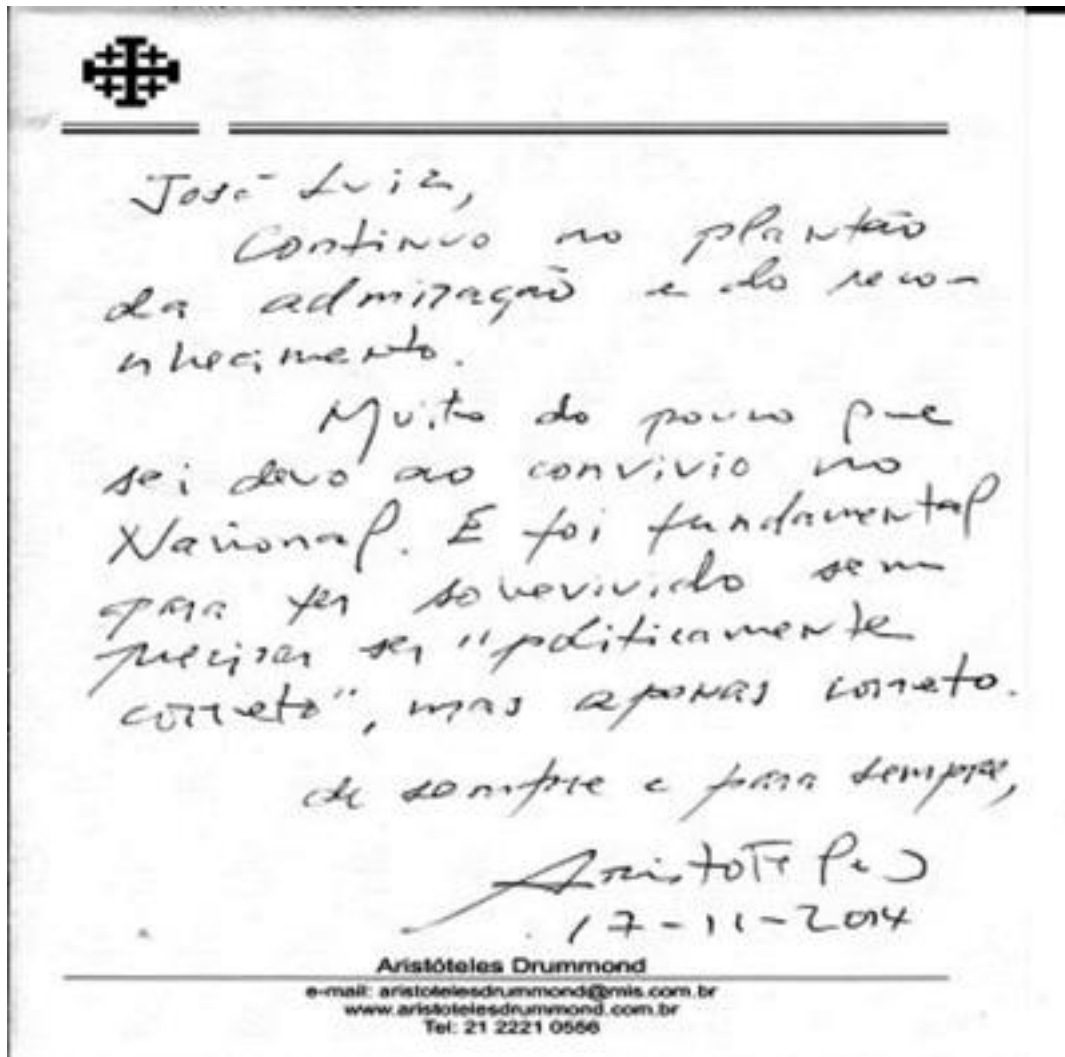 José Luiz,
Continuo no plantão
da admiração e do reco-
nhecimento.
Muito do pouco que
sei devo ao convivio no
Nacional. E foi fundamental
para ter sobrevivido sem
precisar ser "politicamente
correto", mas apenas correto.
de sempre e para sempre,
Aristoteles
17-11-2014
Aristóteles Drummond
e-mail: aristotelesdrummond@mls.com.br
www.aristotelesdrummond.com.br
Tel: 21 2221 0556